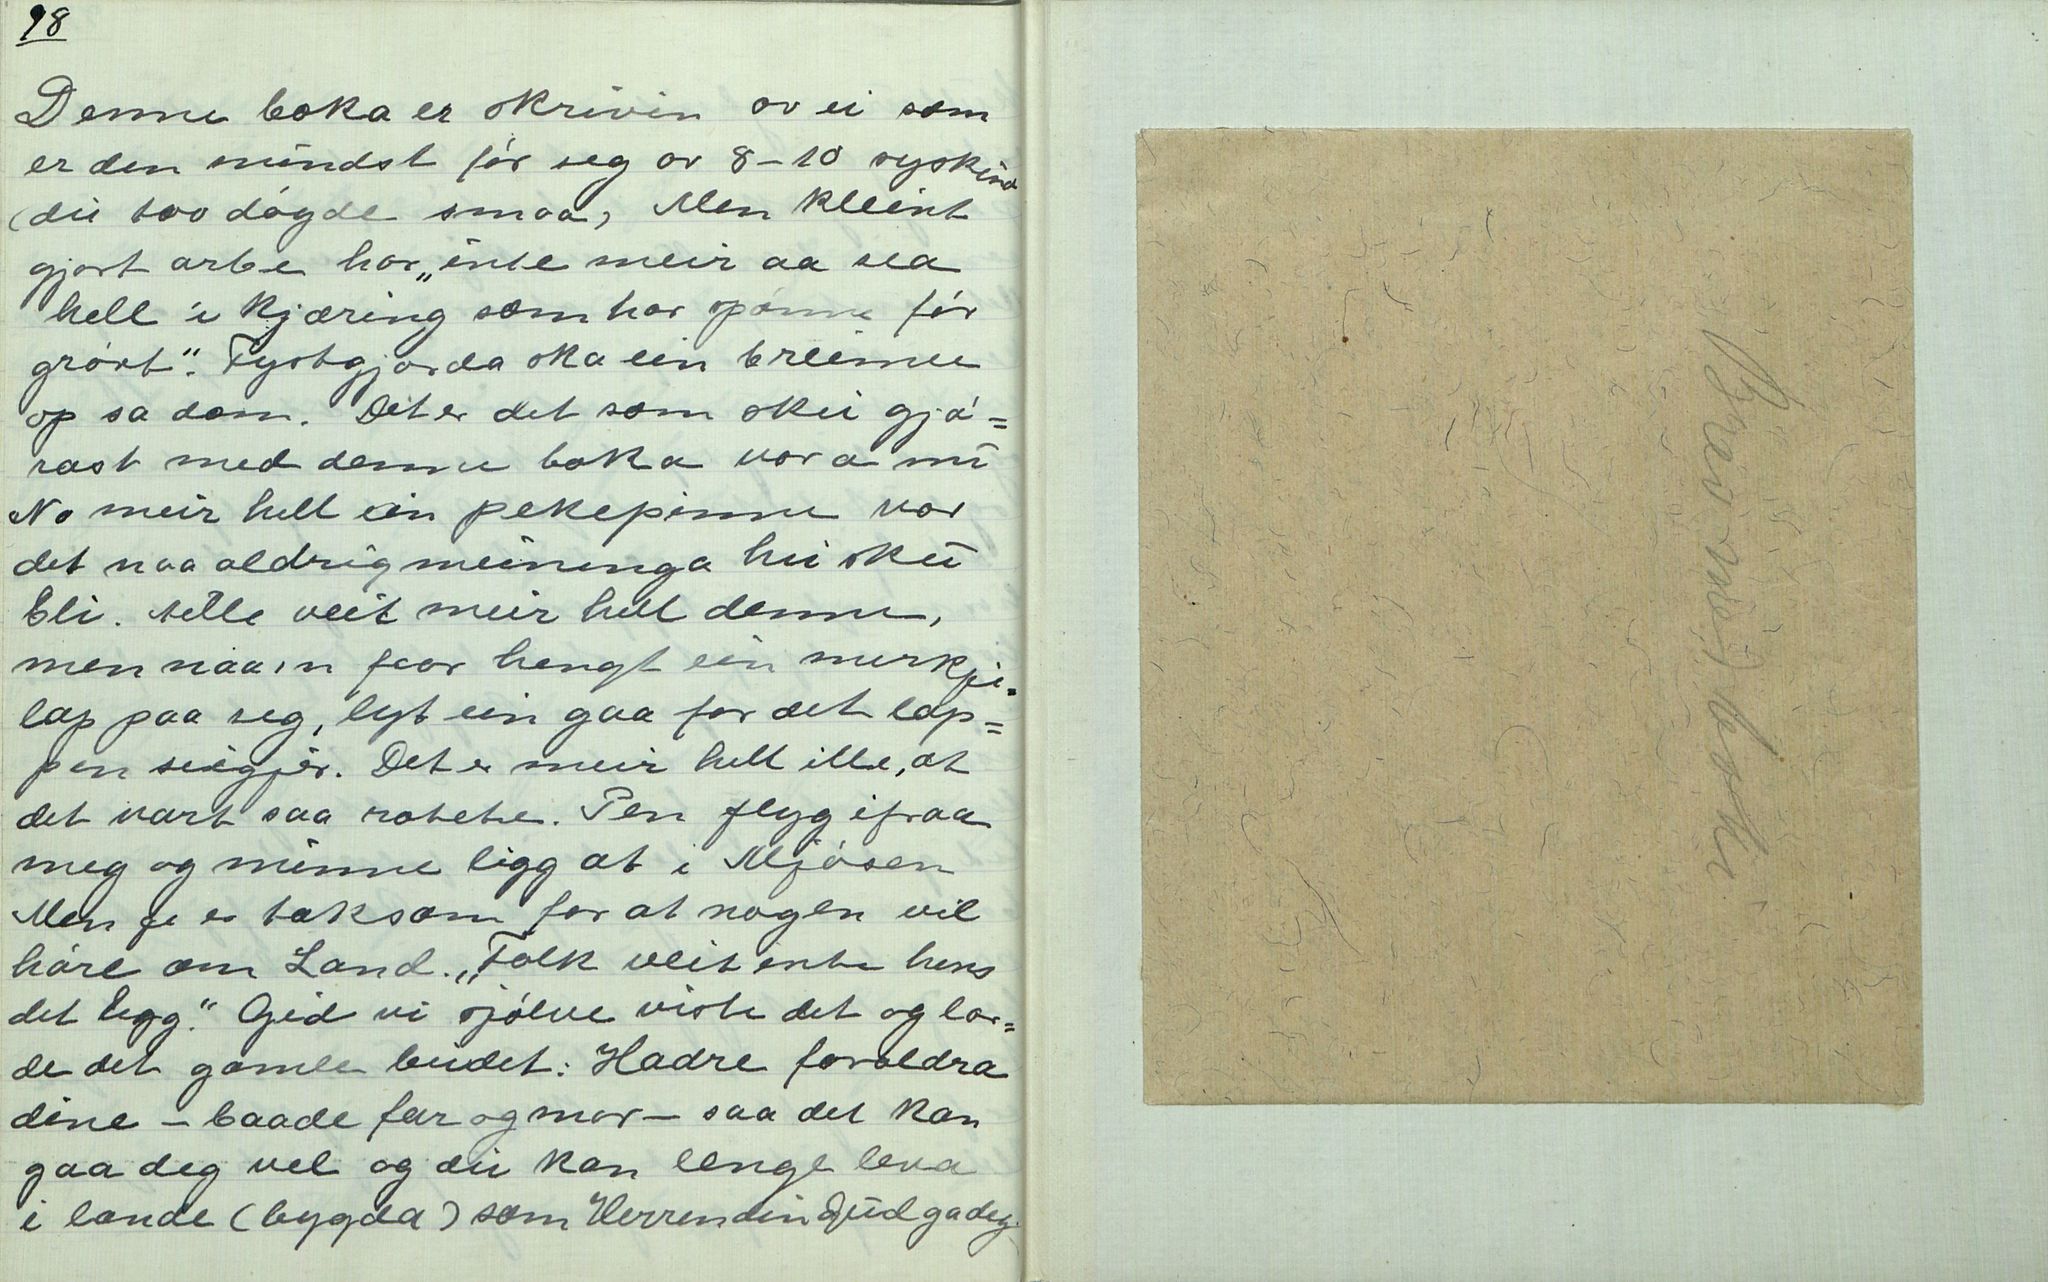 98
Denne boka er skrivin ov ei som
er den mindst før seg ov 8-10 syskind
(dei too døgde smaa, Men kleint
gjort arbe har „inte meir aa sea
hell 'i kjæring som har spønne før
grørt". Fystgjorda ska ein breinne
op sa dom. Det er det som skui gjø=
rast med denne boka vor a nü
No meir hell ein pekepinne var
det naa aldrig meininga hu skü
bli. Ælle veit meir hell denne,
men naa'n faar hengt ein merkji=
lap paa seg, lyt ein gaa for det lap=
pen seiegjer. Det er meir hell ille, at
det vart saa rotete. Pen flyg ifraa
meg og minne ligg at i Mjøsen
Men je er taksom for at nogen vil
høre om Land. „Folk veit inte hens
det legg." Gid vi sjølve viste det og lør=
de det gamle budet: Hadre foraldra
dine - baade far og mor - saa det kan
gaa deg vel og du kan lenge leva
i lande (bygda) som Herren din Gud ga deg.